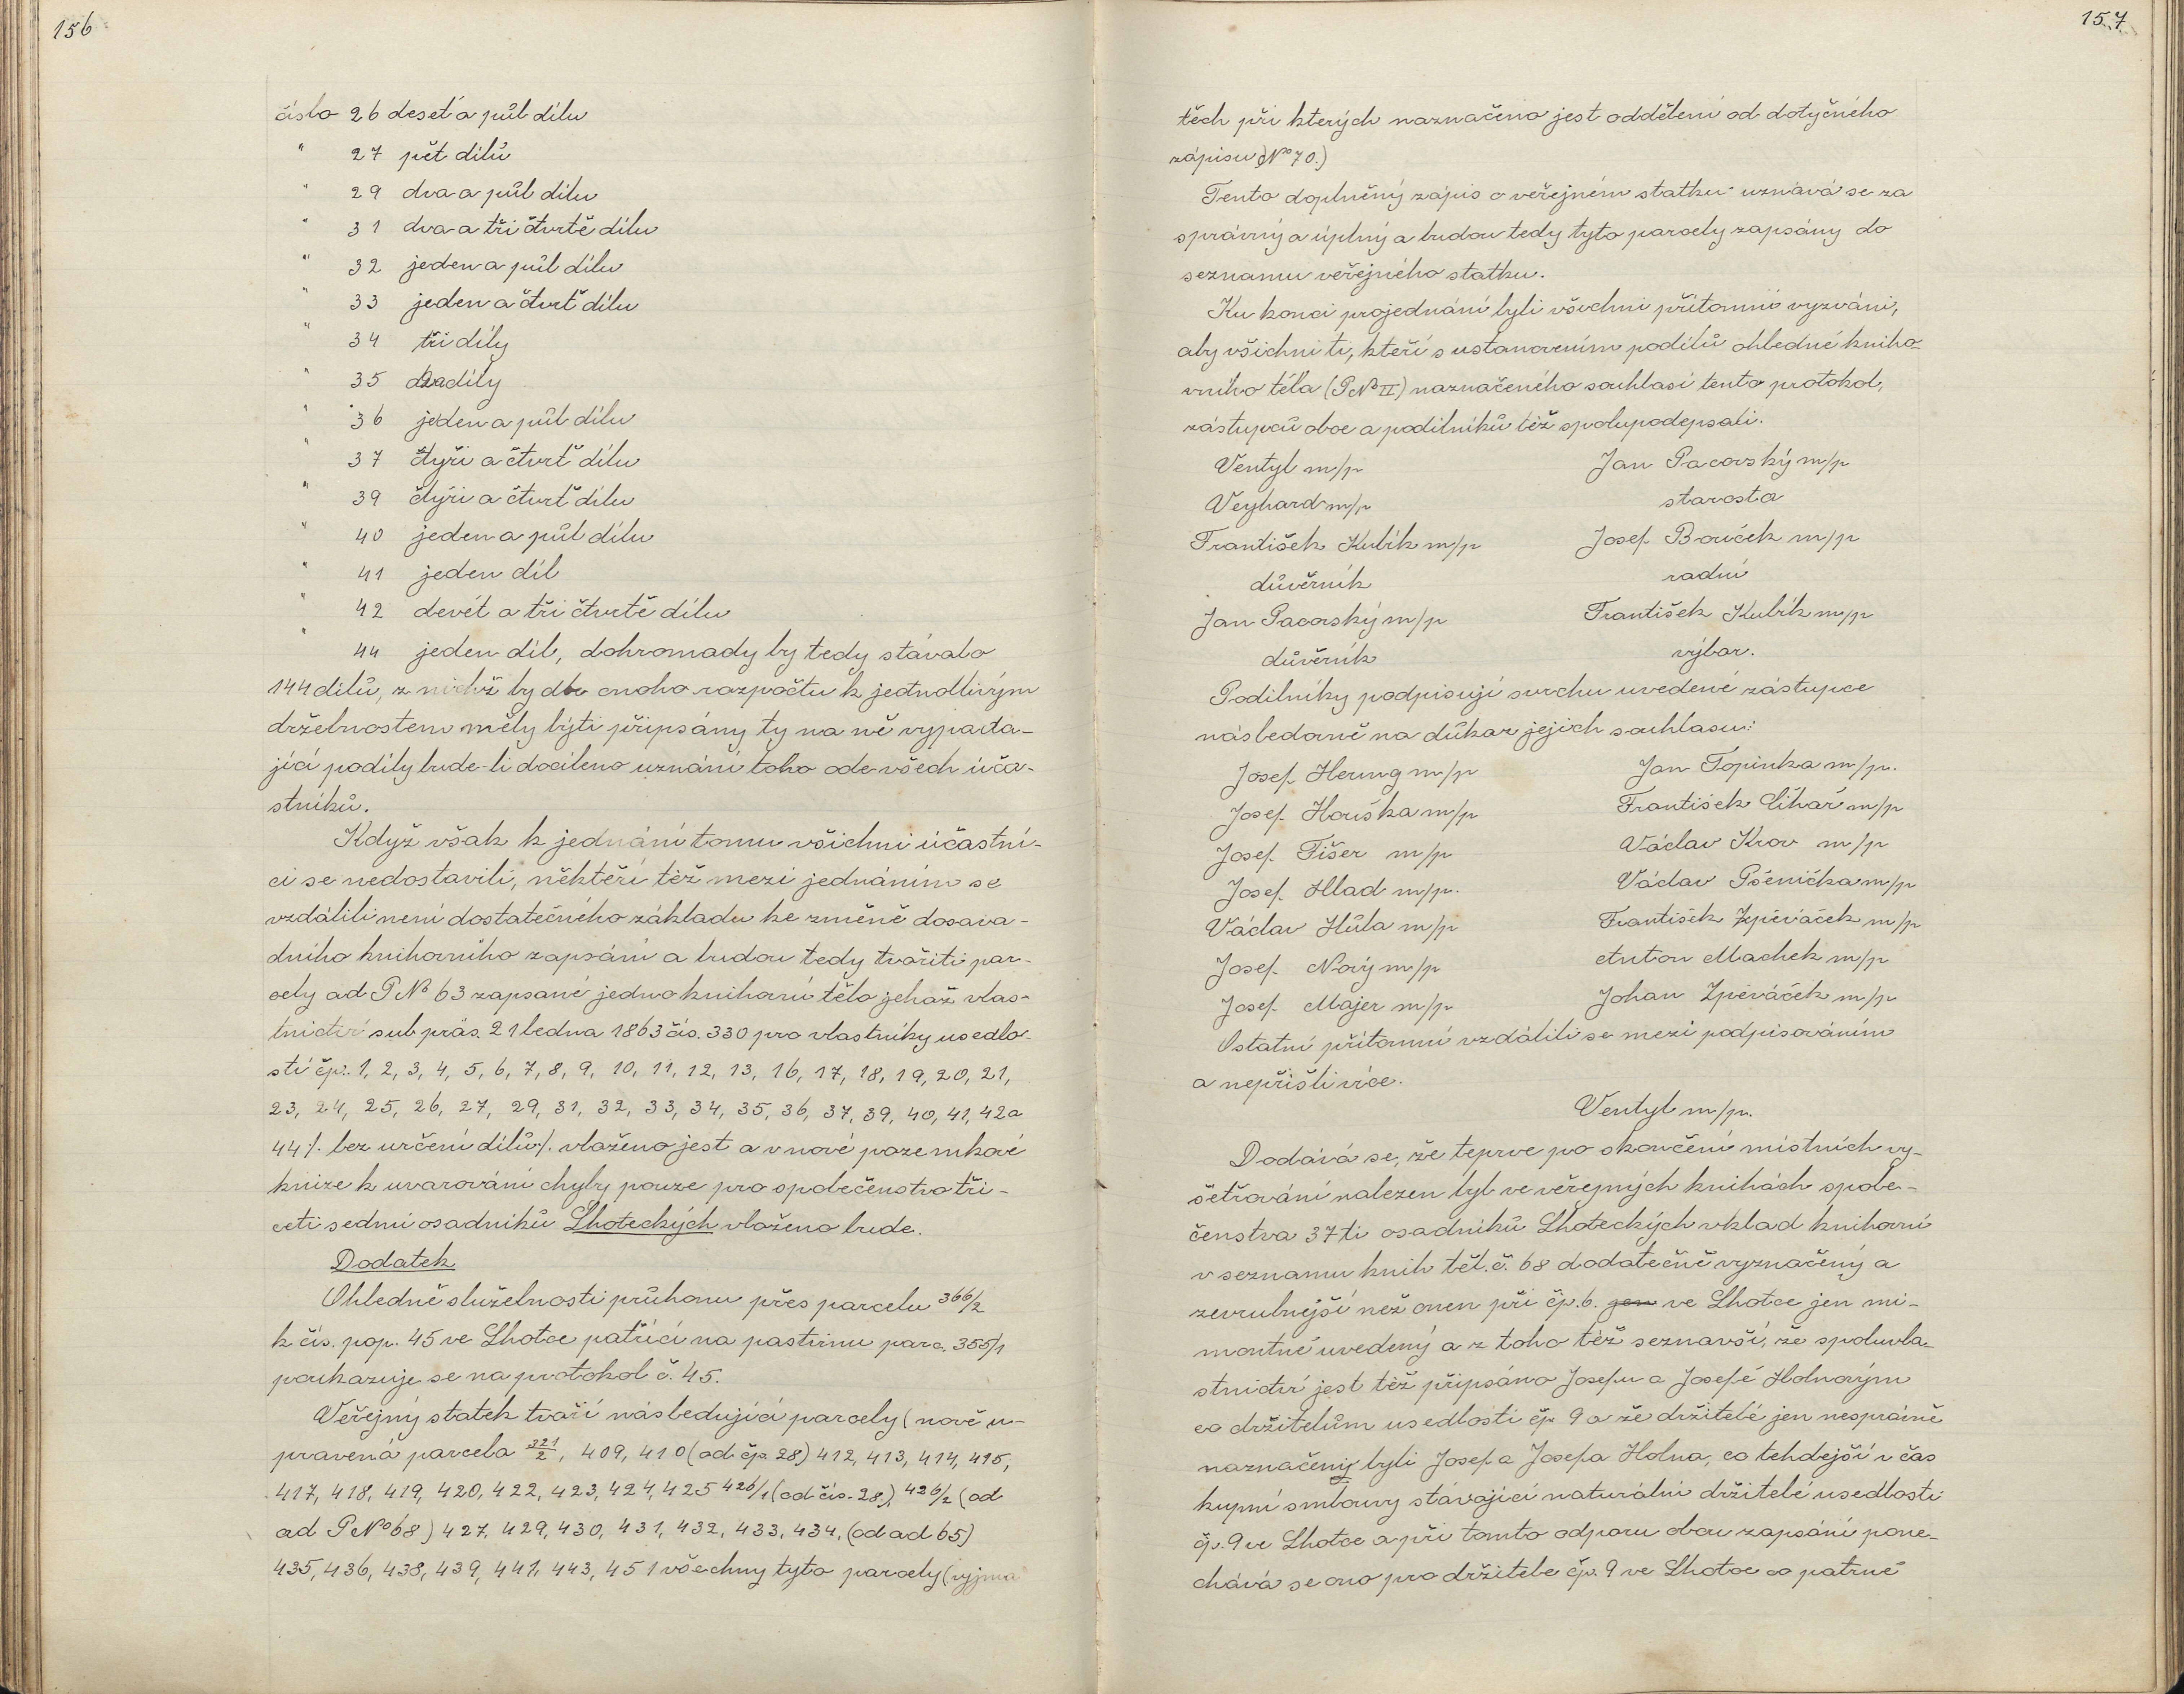 156
číslo 26 deset a půl dílu
" 27 pět dílů
" 29 dva a půl dílu
" 31 dva a tři čtvrtě dílu
" 32 jeden a půl dílu
" 33 jeden a čtvrť dílu
" 34 tři díly
" 35 dva díly
" 36 jeden a půl dílu
" 37 čtyři a čtvrť dílu
" 39 čtyři a čtvrť dílu
" 40 jeden a půl dílu
" 41 jeden díl
" 42 devět a tři čtvrtě dílu
" 44 jeden díl, dohromady by tedy stávalo
144 dílů, z nichž by dle onoho rozpočtu k jednotlivým
držebnostem měly býti připsány ty na ně vypada-
jící podíly bude-li docíleno uznání toho ode všech úča-
stníků.
Když však k jednání tomu všichni účastní-
ci se nedostavili, někteří též mezi jednáním se
vzdálili není dostatečného základu ke změně dosava-
dního knihovního zapsání a budou tedy tvořiti par-
cely ad P No 63 zapsané jedno knihovní tělo jehož vlas-
tnictví sub präs. 21 ledna 1863 čís. 330 pro vlastníky usedlo-
stí čp. 1, 2, 3, 4, 5, 6, 7, 8, 9, 10, 11, 12, 13, 16, 17, 18, 19, 20, 21,
23, 24, 25, 26, 27, 29, 31, 32, 33, 34, 35, 36, 37, 39, 40, 41, 42 a
44 /. bez určení dílů /. vloženo jest a v nové pozemkové
knize k uvarování chyby pouze pro společenstvo tři-
ceti sedmi osadníků Lhoteckých vloženo bude.
Dodatek
Ohledně služebnosti průhonu přes parcelu 366/2
k čís. pop. 45 ve Lhotce patřící na pastvinu parc. 355/1
poukazuje se na protokol č. 45.
Veřejný statek tvoří následující parcely (nově u-
pravená parcela 321/2, 409, 410 (od čp. 28) 412, 413, 414, 415,
417, 418, 419, 420, 422, 423, 424, 425 426/1 (od čís. 28), 426/2 (od
ad P No 68) 427, 429, 430, 431, 432, 433, 434, (od ad 65)
435, 436, 438, 439, 441, 443, 451 všechny tyto parcely (vyjma
157
těch při kterých naznačeno jest oddělení od dotyčného
zápisu (No 70.)
Tento doplněný zápis o veřejném statku uznává se za
správný a úplný a budou tedy tyto parcely zapsány do
seznamu veřejného statku.
Ku konci projednání byli všichni přítomní vyzváni,
aby všichni ti, kteří s ustanovením podílů ohledně kniho-
vního těla (P No II) naznačeného souhlasí tento protokol,
zástupců obce a podílníků též spolupodepsali.
Ventyl m/p Jan Pacovský m/p
Veyhard m/p starosta
František Kubík m/p Josef Bouček m/p
důvěrník radní
Jan Pacovský m/p František Kubík m/p
důvěrník výbor.
Podílníky podpisují svrchu uvedené zástupce
následovně na důkaz jejich souhlasu:
Josef Herung m/p Jan Topinka m/p.
Josef Houška m/p František Cihař m/p
Josef Fišer m/p Václav Krov m/p
Josef Hlad m/p. Václav Pšenička m/p
Václav Hůla m/p František Zpěváček m/p
Josef Nový m/p Anton Machek m/p
Josef Majer m/p Johan Zpěváček m/p
Ostatní přítomní vzdálili se mezi podpisováním
a nepřišli více.
Ventyl m/p.
Dodává se, že teprve po skončení místních vy-
šetřování nalezen byl ve veřejných knihách spole-
čenstva 37 ti osadníků Lhoteckých vklad knihovní
v seznamu knih. těl. č. 68 dodatečně vyznačený a
zevrubnější než onen při čp. 6. jen ve Lhotce jen mi-
montně uvedený a z toho též seznavší, že spoluvla-
stnictví jest též připsáno Josefu a Josefě Holnovým
co držitelům usedlosti čp. 9 a že držitelé jen nesprávně
naznačený byli Josef a Josefa Holna, co tehdejší v čas
kupní smlouvy stávající naturální držitelé usedlosti
čp. 9 ve Lhotce a při tomto odporu obou zapsání pone-
chává se ono pro držitele čp. 9 ve Lhotce co patrně